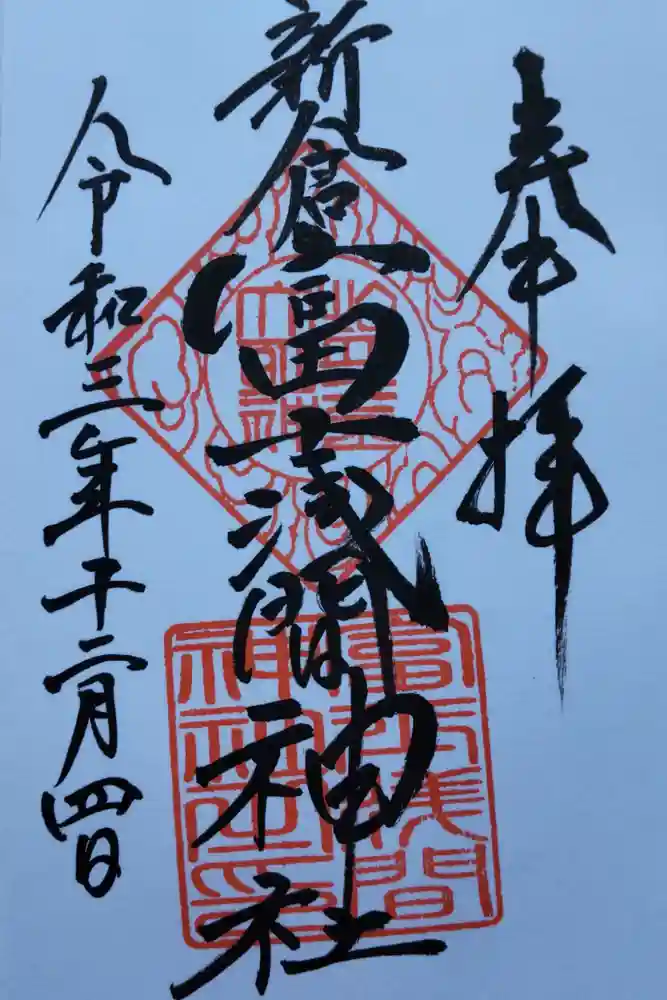 奉拝
新倉富士浅間神社
令和三年十二月四日
冨士浅間
神社之印